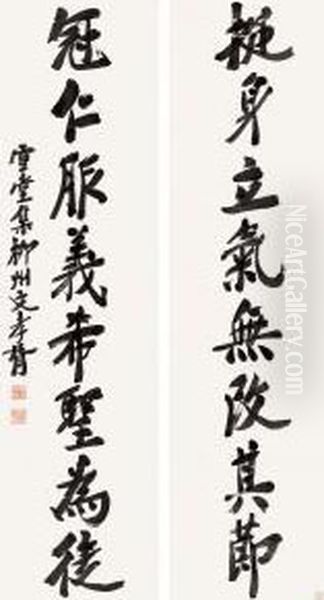 挺身立氣無改其節
冠仁服義希聖為徒
雪堂集柳州文李瑞
NiceArtGallery.com